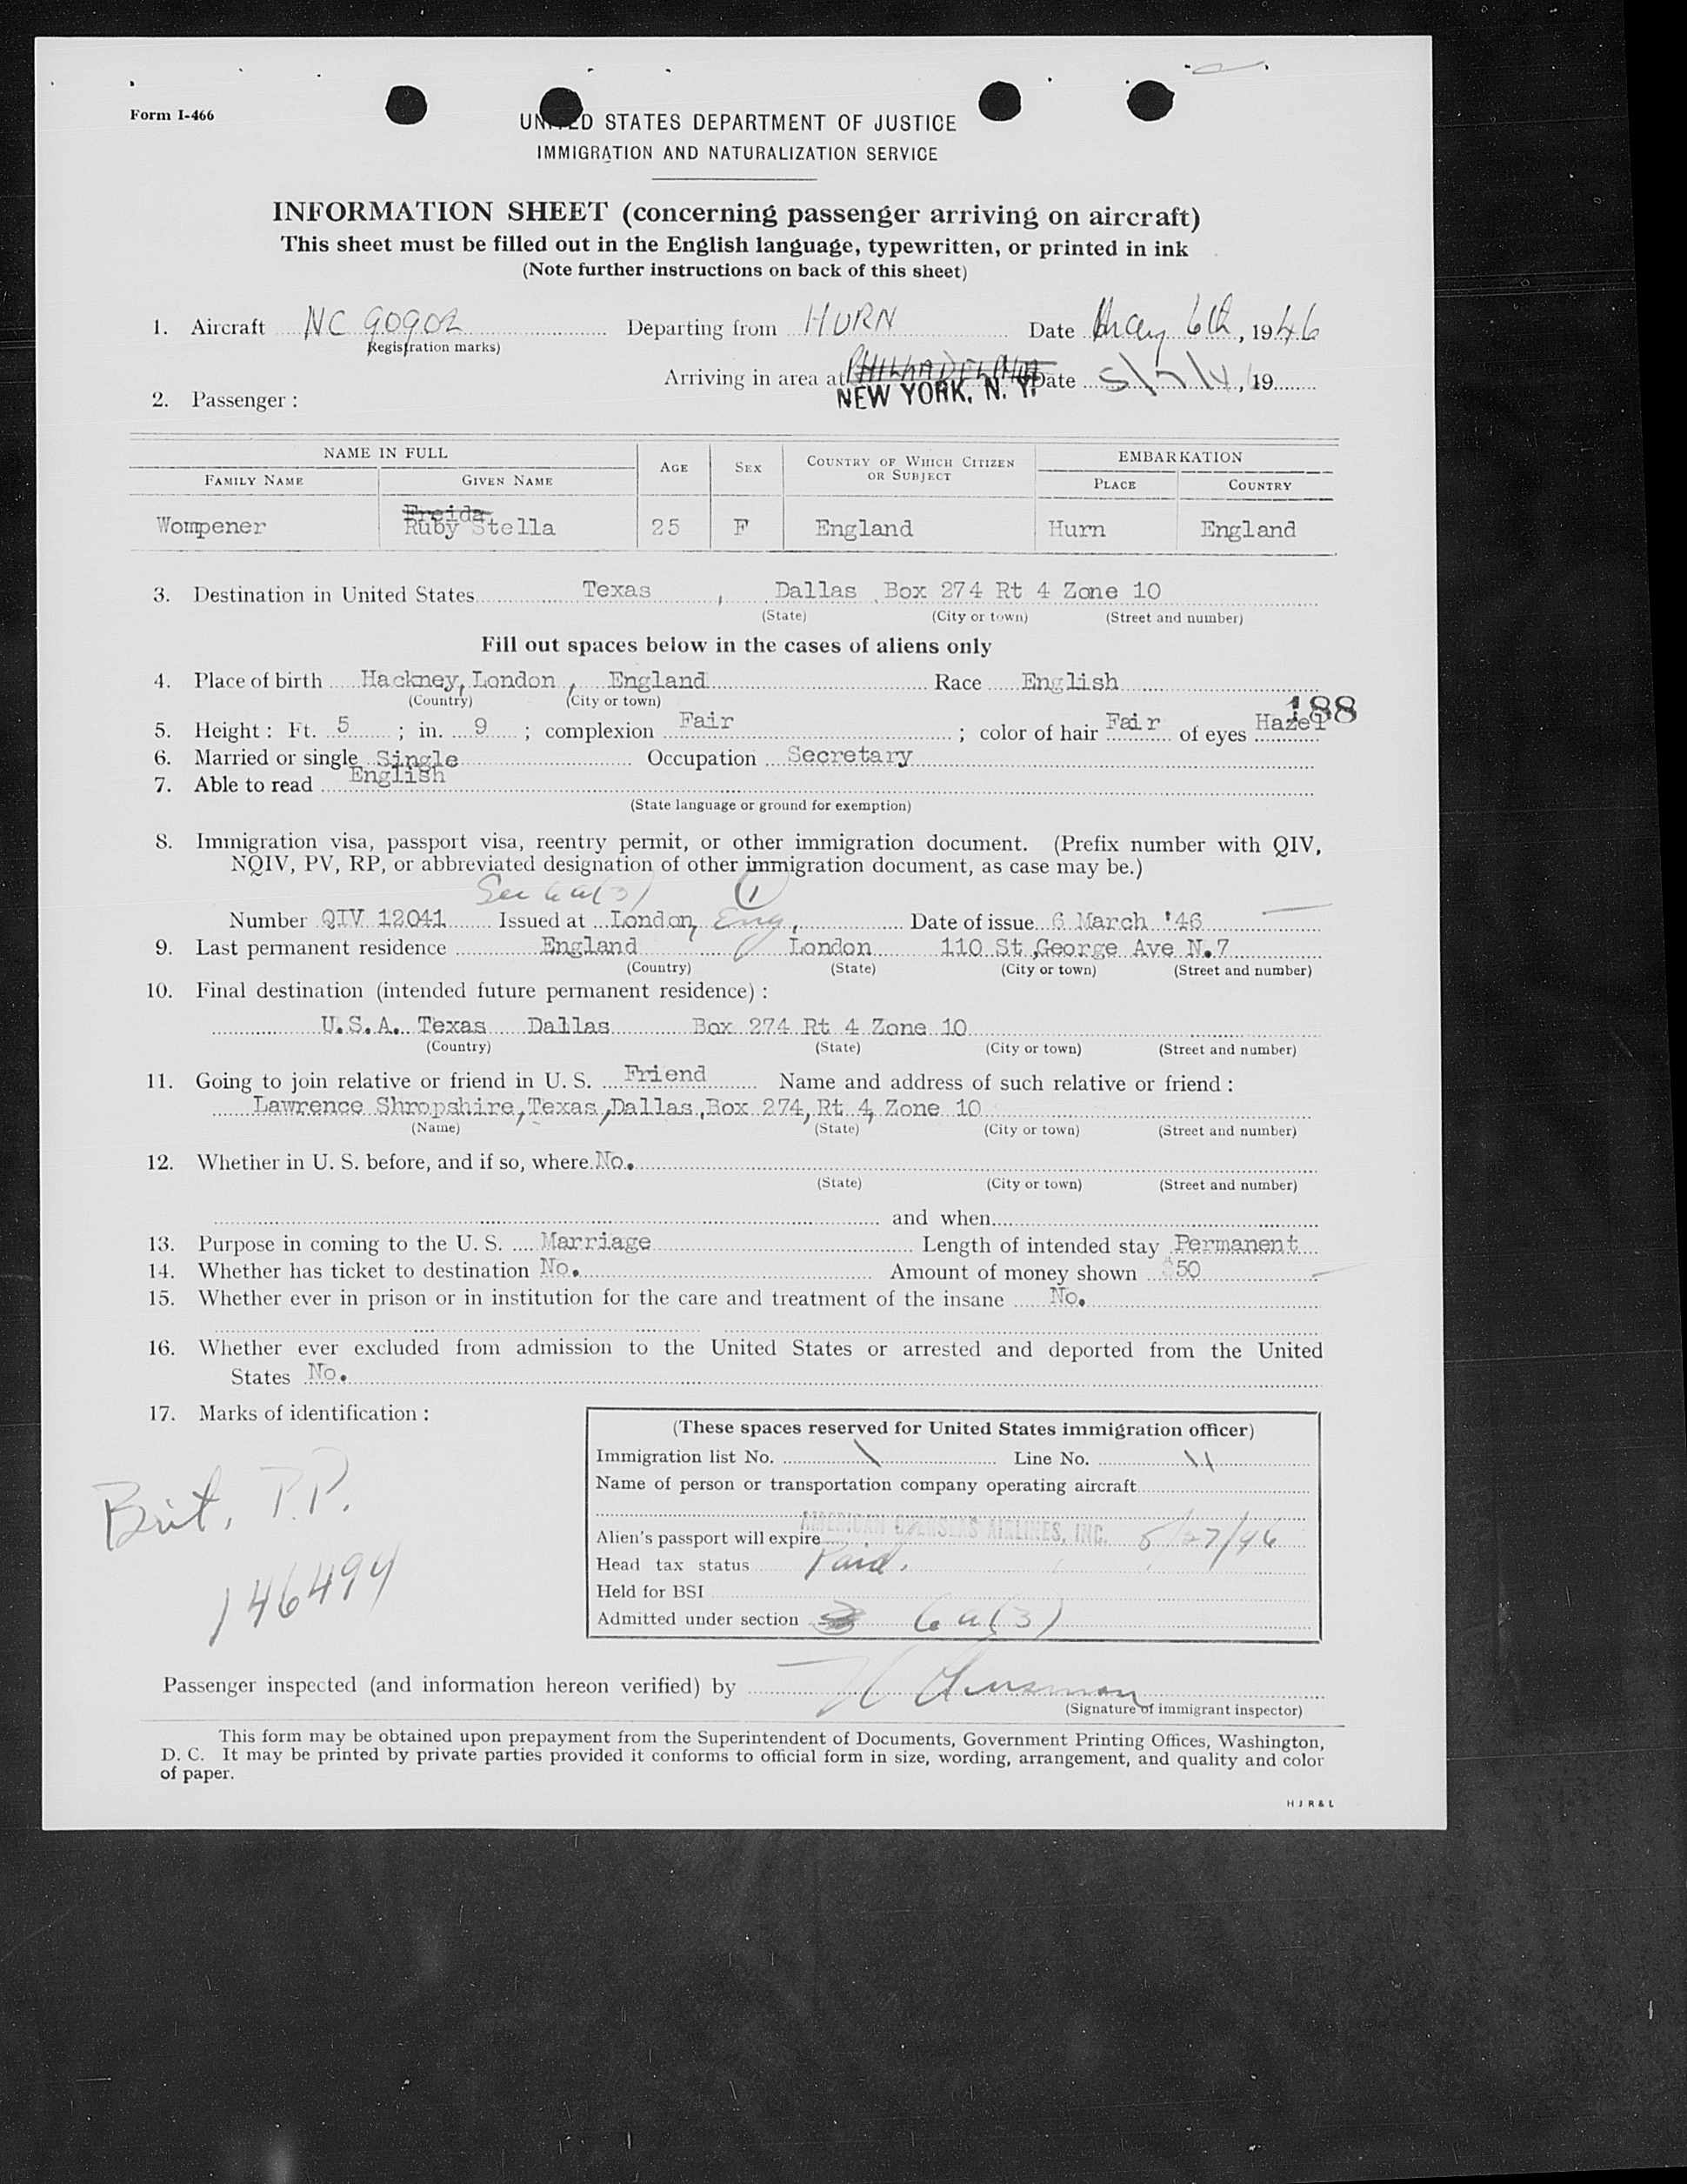 Form I-466
UNITED STATES DEPARTMENT OF JUSTICE
IMMIGRATION AND NATURALIZATION SERVICE
INFORMATION SHEET (concerning passenger arriving on aircraft)
This sheet must be filled out in the English language, typewritten, or printed in ink
(Note further instructions on back of this sheet)
1. Aircraft NC 90902 Departing from HURN Date May 6th, 1946
(Registration marks)
Arriving in area at PHILADELPHIA Date 5/7/4, 19
NEW YORK, N. Y.
2. Passenger :
NAME IN FULL AGE SEX COUNTRY OF WHICH CITIZEN OR SUBJECT EMBARKATION
FAMILY NAME GIVEN NAME PLACE COUNTRY
Freida
Wompener Ruby Stella 25 F England Hurn England
3. Destination in United States Texas , Dallas Box 274 Rt 4 Zone 10
(State) (City or town) (Street and number)
Fill out spaces below in the cases of aliens only
4. Place of birth Hackney, London , England Race English
(Country) (City or town)
188
5. Height : Ft. 5 ; in. 9 ; complexion Fair ; color of hair Fair of eyes Hazel
6. Married or single Single Occupation Secretary
7. Able to read English
(State language or ground for exemption)
8. Immigration visa, passport visa, reentry permit, or other immigration document. (Prefix number with QIV,
NQIV, PV, RP, or abbreviated designation of other immigration document, as case may be.)
Sec 6 a(3) 1
Number QIV 12041 Issued at London, Eng, Date of issue 6 March '46
9. Last permanent residence England London 110 St George Ave N.7
(Country) (State) (City or town) (Street and number)
10. Final destination (intended future permanent residence) :
U.S.A. Texas Dallas Box 274 Rt 4 Zone 10
(Country) (State) (City or town) (Street and number)
11. Going to join relative or friend in U. S. Friend Name and address of such relative or friend :
Lawrence Shropshire, Texas, Dallas, Box 274, Rt 4, Zone 10
(Name) (State) (City or town) (Street and number)
12. Whether in U. S. before, and if so, where No.
(State) (City or town) (Street and number)
and when
13. Purpose in coming to the U. S. Marriage Length of intended stay Permanent
14. Whether has ticket to destination No. Amount of money shown $50
15. Whether ever in prison or in institution for the care and treatment of the insane No.
16. Whether ever excluded from admission to the United States or arrested and deported from the United
States No.
17. Marks of identification :
Brit, P.P.
146494
(These spaces reserved for United States immigration officer)
Immigration list No. 1 Line No. 11
Name of person or transportation company operating aircraft
AMERICAN OVERSEAS AIRLINES, INC.
Alien's passport will expire 5/27/46
Head tax status Paid.
Held for BSI
Admitted under section 6 a(3)
Passenger inspected (and information hereon verified) by
(Signature of immigrant inspector)
This form may be obtained upon prepayment from the Superintendent of Documents, Government Printing Offices, Washington,
D. C. It may be printed by private parties provided it conforms to official form in size, wording, arrangement, and quality and color
of paper.
H J R & L